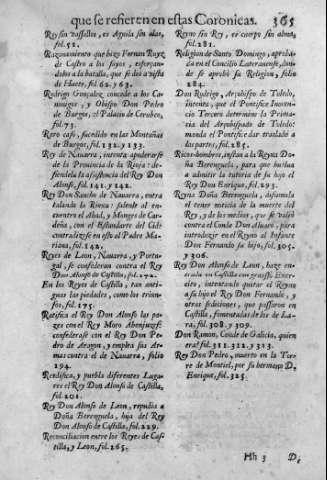 que se refieren en estas Coronicas. 365
Rey sin vassallos, es Aguila sin alas,
fol. 52.
Razonamiento que hizo Fernan Ruyz
de Castro a los suyos, esforçan-
dolos a la batalla, que se diò a vista
de Huete, fol. 62. y 63.
Rodrigo Gonçalez, concede a los Ca-
nonigos, y Obispo Don Pedro
de Burgos, el Palacio de
fol. 73.
Raro caso, sucedido en las Montañas
de Burgos, fol. 132. y 133.
Rey de Navarra, intenta apoderarse
de la Provincia de la Rioxa: de-
fiendela la assistencia del Rey Don
Alonso, fol. 141. y 142.
Rey Don Sancho de Navarra, entra
talando la Rioxa: salenle al en-
cuentro el Abad, y Monges de Car-
deña, con el Estandarte del Cid:
fol. 142.
Reyes de Leon, Navarra, y Portu-
gal, se confederan contra el Rey
Don Alonso de Castilla, fol. 172.
En los Reyes de Castilla, tan anti-
guos los como los
fos, fol. 175.
Ratifica el Rey Don Alonso las pa-
zes con el Rey Moro
confederase con el Rey Don Pe-
dro de Aragon, y emplea sus Ar-
mas contra el de Navarra, folio
194.
Reedifica, y puebla diferentes Luga-
res el Rey Don Alonso de Castilla,
fol. 201.
Rey Don Alonso de Leon, repudia a
Doña Berenguela, hija del Rey
Don Alonso de Castilla, fol. 229.
Reconciliacion entre los Reyes de Cas-
tilla, y Leon, fol. 265.
Reyno sin Rey, es cuerpo sin alma,
fol. 281.
Religion de Santo Domingo, aproba-
da en el Concilio Lateranense, don-
de se aprobò su Religion, folio
284.
Don Rodrigo, Arçobispo de Toledo,
intenta, que el Pontifice Inocen-
cio Tercero determine la Prima-
cia del Arçobispado de Toledo:
manda el Pontifice dar traslado a
las partes, fol. 285.
Ricos-hombres, instan a la Reyna Do-
ña Berenguela, para que buelva
a admitir la tutoria de su hijo el
Rey Don Enrique, fol. 293.
Reyna Doña Berenguela, dissimula
el tener noticia de la muerte del
Rey, y de los medios, que se valiò
contra el Conde Don Alvaro, para
introducir en el Reyno al Infante
Don Fernando su hijo, fol. 305.
y 306.
Rey Don Alonso de Leon, haze en-
trada en Castilla con gruesso Exer-
cito, intentando quitar el Reyno
a su hijo el Rey Don Fernando, y
otras sediciones, que passaron en
Castilla, fomentadas de los de La-
ra, fol. 308. y 309.
Don Ramon, Conde de Galicia, quien
era? fol. 311. 322. y 323.
Rey Don Pedro, muerto en la Tor-
re de Montiel, por su hermano D.
Enrique, fol. 325.
Hh 3 D,